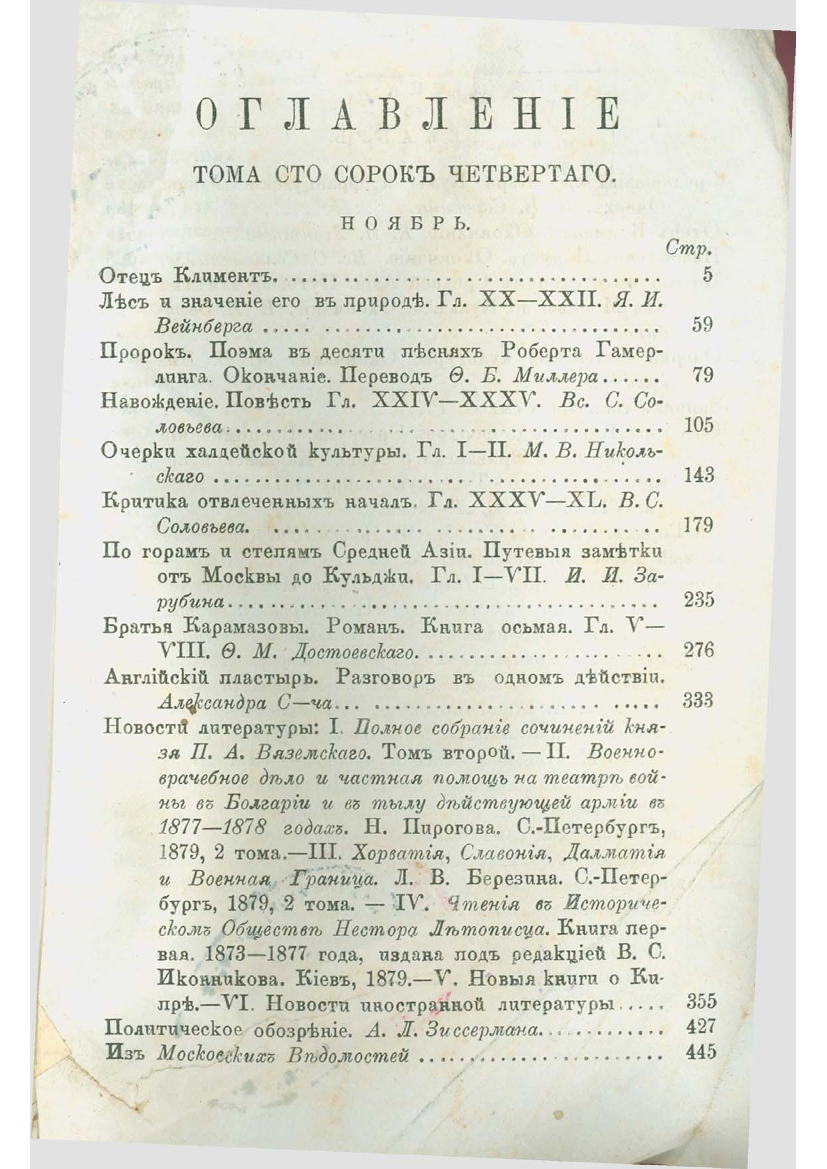 ОГЛАВЛЕНІЕ
ТОМА СТО СОРОКЪ ЧЕТВЕРТАГО.
НОЯБРЬ.
Стр.
Отецъ Климентъ. .......................................... 5
Лѣсъ и значеніе его въ природѣ. Гл. XX—XXII. Я. И.
Вейнберга .......................................... 59
Пророкъ. Поэма въ десяти пѣсняхъ Роберта Гамер-
линга. Окончаніе. Переводъ Ѳ. Б. Миллера...... 79
Навожденіе. Повѣсть Гл. XXIV—XXXV. Вс. С. Со-
ловьева.......................................... 105
Очерки халдейской культуры. Гл. I—II. М. В. Николь-
скаго .......................................... 143
Критика отвлеченныхъ началъ. Гл. XXXV—XL. В. С.
Соловьева. .......................................... 179
По горамъ и степямъ Средней Азіи. Путевыя замѣтки
отъ Москвы до Кульджи. Гл. I—VII. И. И. За-
рубина.......................................... 235
Братья Карамазовы. Романъ. Книга осьмая. Гл. V—
VIII. Ѳ. М. Достоевскаго. ........................ 276
Англійскій пластырь. Разговоръ въ одномъ дѣйствіи.
Александра С—ча... .............................. 333
Новости литературы: I. Полное собраніе сочиненій кня-
зя П. А. Вяземскаго. Томъ второй. — II. Военно-
врачебное дѣло и частная помощь на театрѣ вой-
ны въ Болгаріи и въ тылу дѣйствующей арміи въ
1877—1878 годахъ. Н. Пирогова. С.-Петербургъ,
1879, 2 тома.—III. Хорватія, Славонія, Далматія
и Военная Граница. Л. В. Березина. С.-Петер-
бургъ, 1879, 2 тома. — IV. Чтенія въ Историче-
скомъ Обществѣ Нестора Лѣтописца. Книга пер-
вая. 1873—1877 года, издана подъ редакціей В. С.
Иконникова. Кіевъ, 1879.—V. Новыя книги о Ки-
прѣ.—VI. Новости иностранной литературы..... 355
Политическое обозрѣніе. А. Л. Зиссермана............ 427
Изъ Московскихъ Вѣдомостей ........................ 445